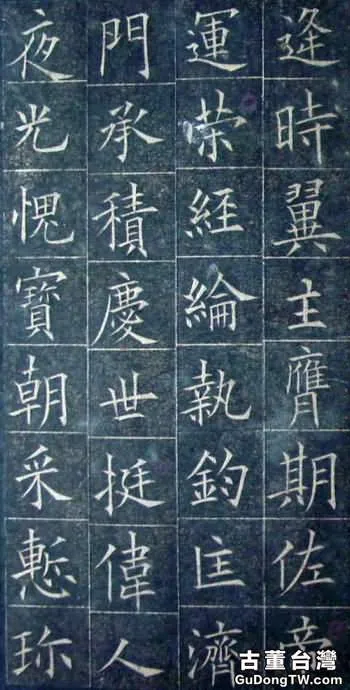 逢時翼主膺期佐帝
運經綸執鈞匡濟
門承積慶世挺偉人
夜光愧寶朝采慙珎
古董台灣
GuDongTW.com